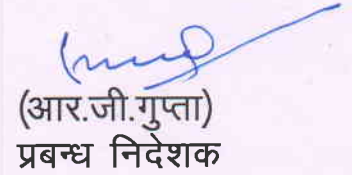 (आर.जी.गुप्ता)
प्रबन्ध निदेशक